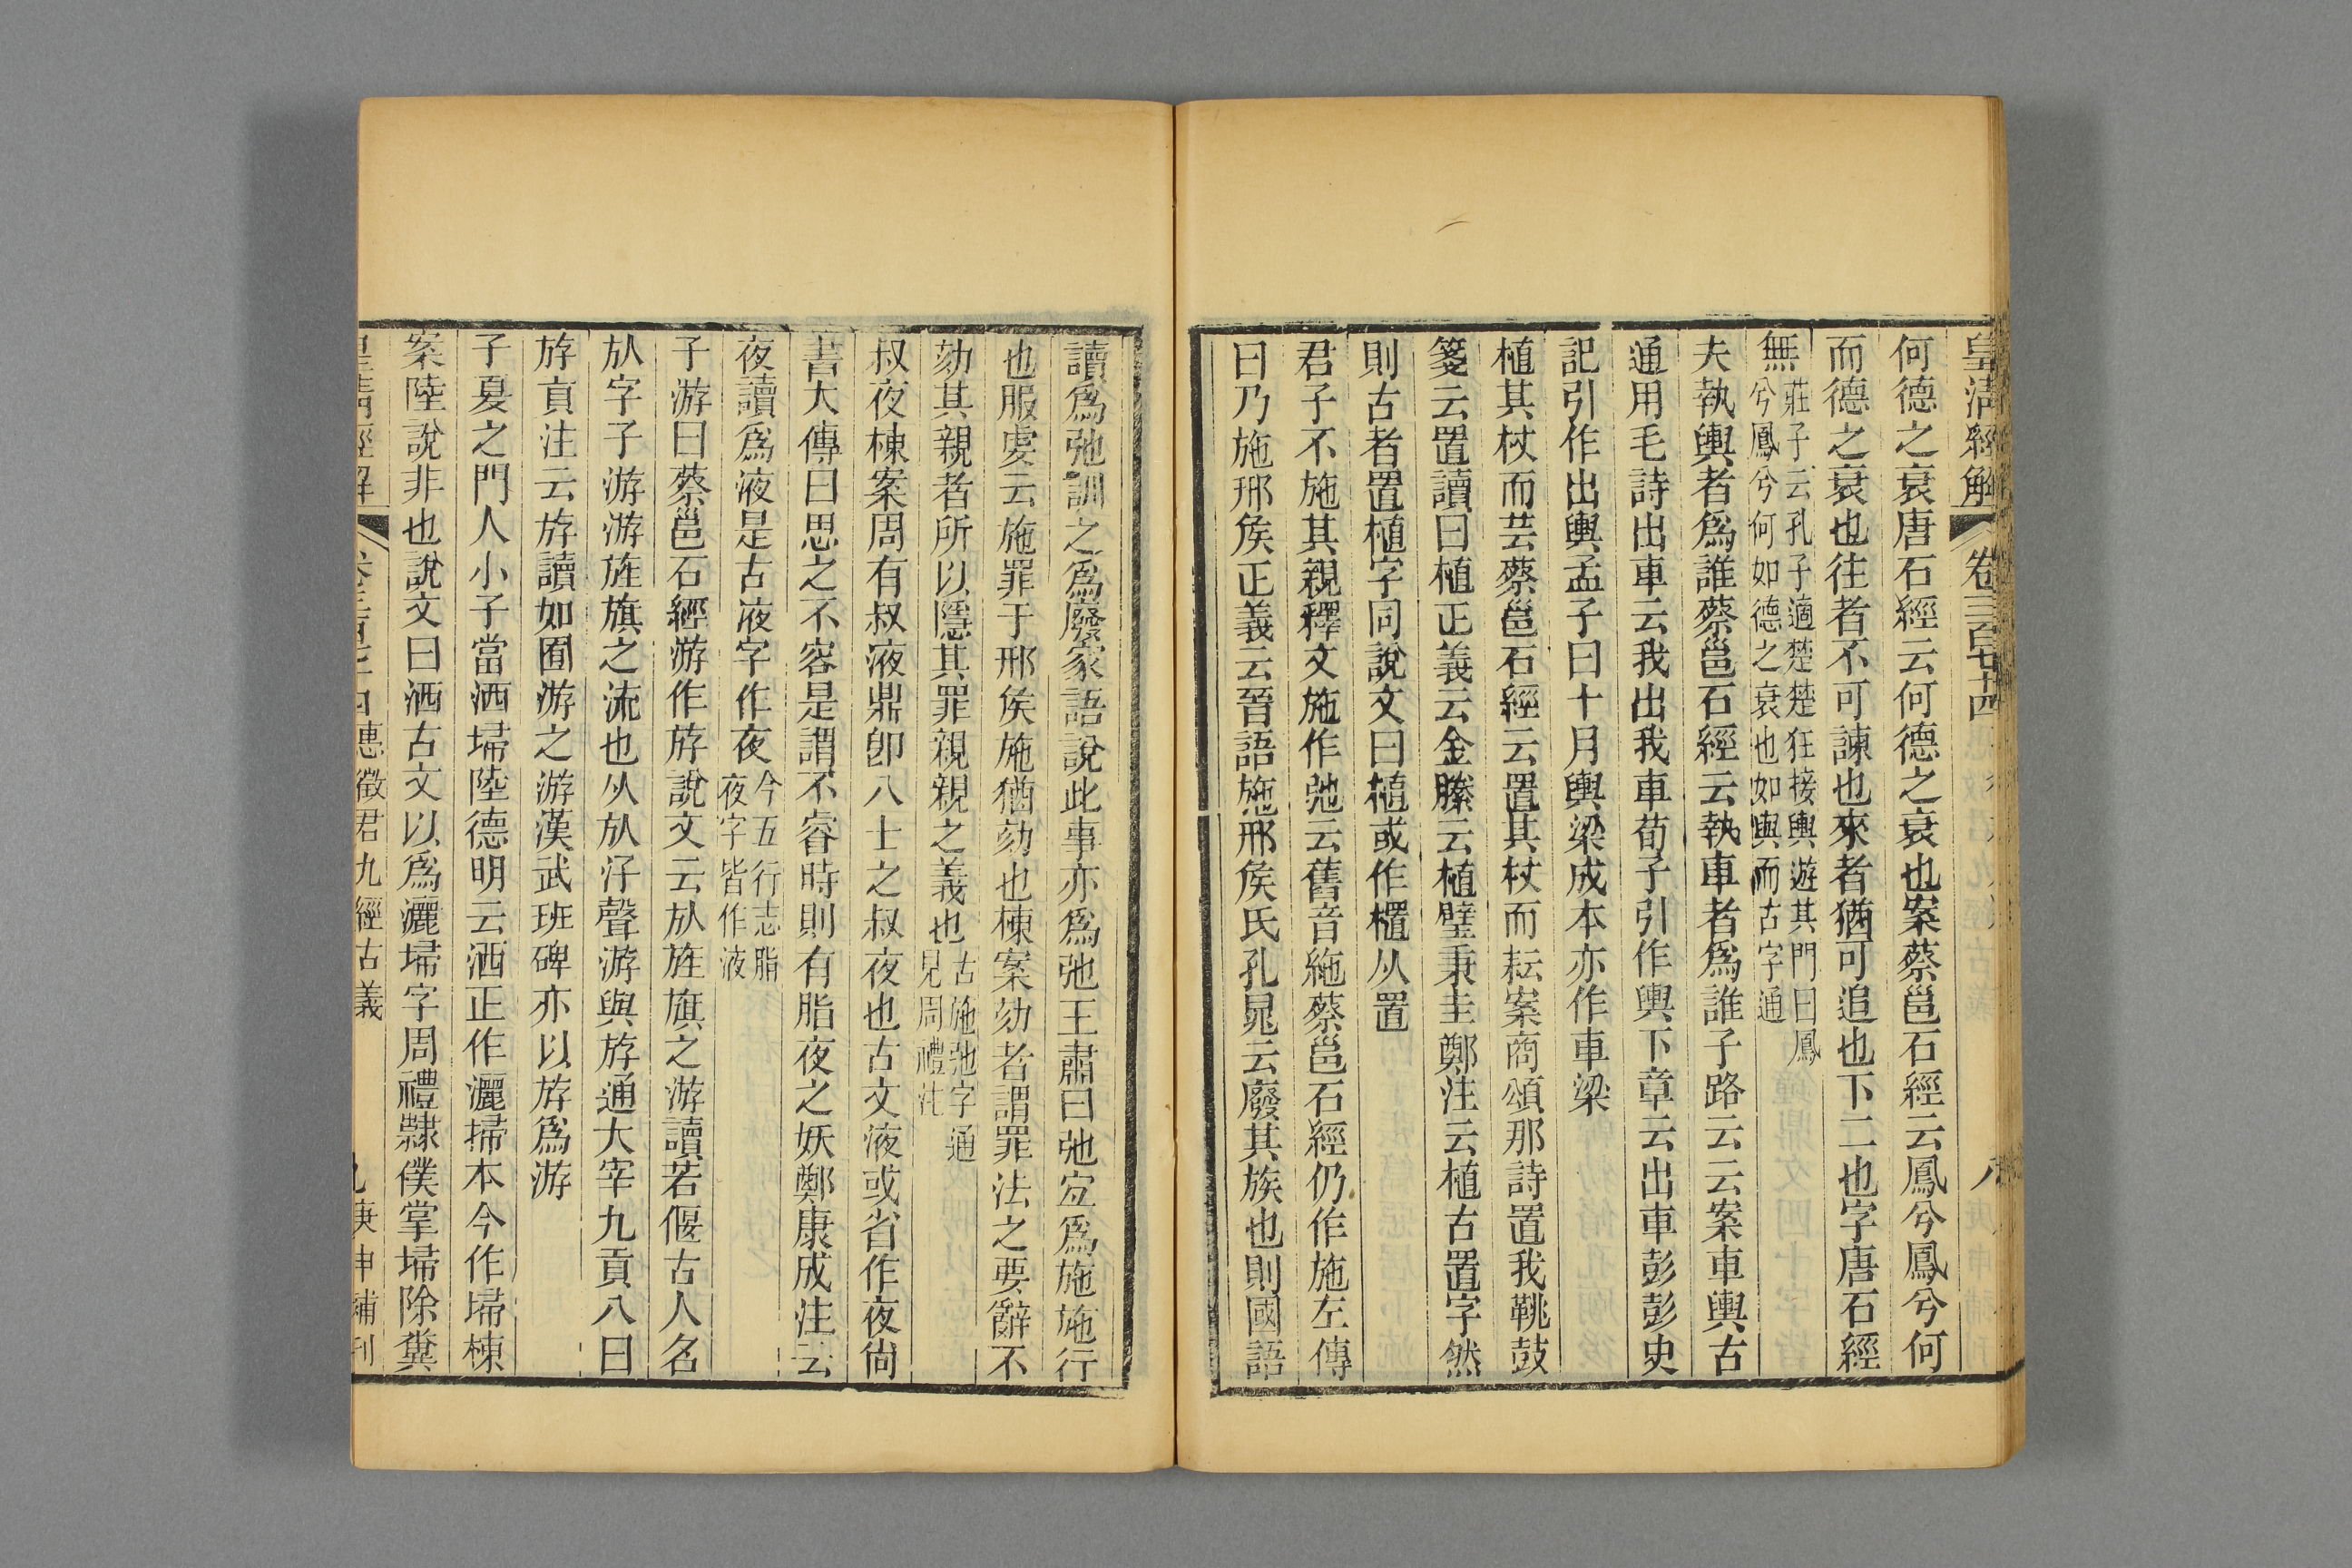 皇清經解 卷三百七十四 八
何德之衰唐石經云何德之衰也案蔡邕石經云鳳兮鳳兮何
而德之衰也往者不可諫也來者猶可追也下二也字唐石經
無莊子云孔子適楚楚狂接輿遊其門曰鳳兮鳳兮何如德之衰也如與而古字通
夫執輿者爲誰蔡邕石經云執車者爲誰子路云云案車輿古
通用毛詩出車云我出我車荀子引作輿下章云出車彭彭史
記引作出輿孟子曰十月輿梁成本亦作車梁
植其杖而芸蔡邕石經云置其杖而耘案商頌那詩置我鞉鼓
箋云置讀曰植正義云金縢云植璧秉圭鄭注云植古置字然
則古者置植字同說文曰植或作櫃从置
君子不施其親釋文施作弛云舊音絁蔡邕石經仍作施左傳
曰乃施邢侯正義云晉語施邢侯氏孔晁云廢其族也則國語
讀爲弛訓之爲廢家語說此事亦爲弛王肅曰弛宜爲施施行
也服虔云施罪于邢侯施猶劾也棟案劾者謂罪法之要辭不
劾其親者所以隱其罪親親之義也古施弛字通見周禮注
叔夜棟案周有叔液鼎卽八士之叔夜也古文液或省作夜尙
書大傳曰思之不容是謂不睿時則有脂夜之妖鄭康成注云
夜讀爲液是古液字作夜今五行志脂夜字皆作液
子游曰蔡邕石經游作斿說文云㫃旌旗之游讀若偃古人名
㫃字子游游旌旗之流也从㫃汓聲游與斿通大宰九貢八曰
斿貢注云斿讀如囿游之游漢武班碑亦以斿爲游
子夏之門人小子當洒埽陸德明云洒正作灑掃本今作埽棟
案陸說非也說文曰洒古文以爲灑埽字周禮隸僕掌埽除糞
皇清經解 惠徵君九經古義 九 庚申補刊